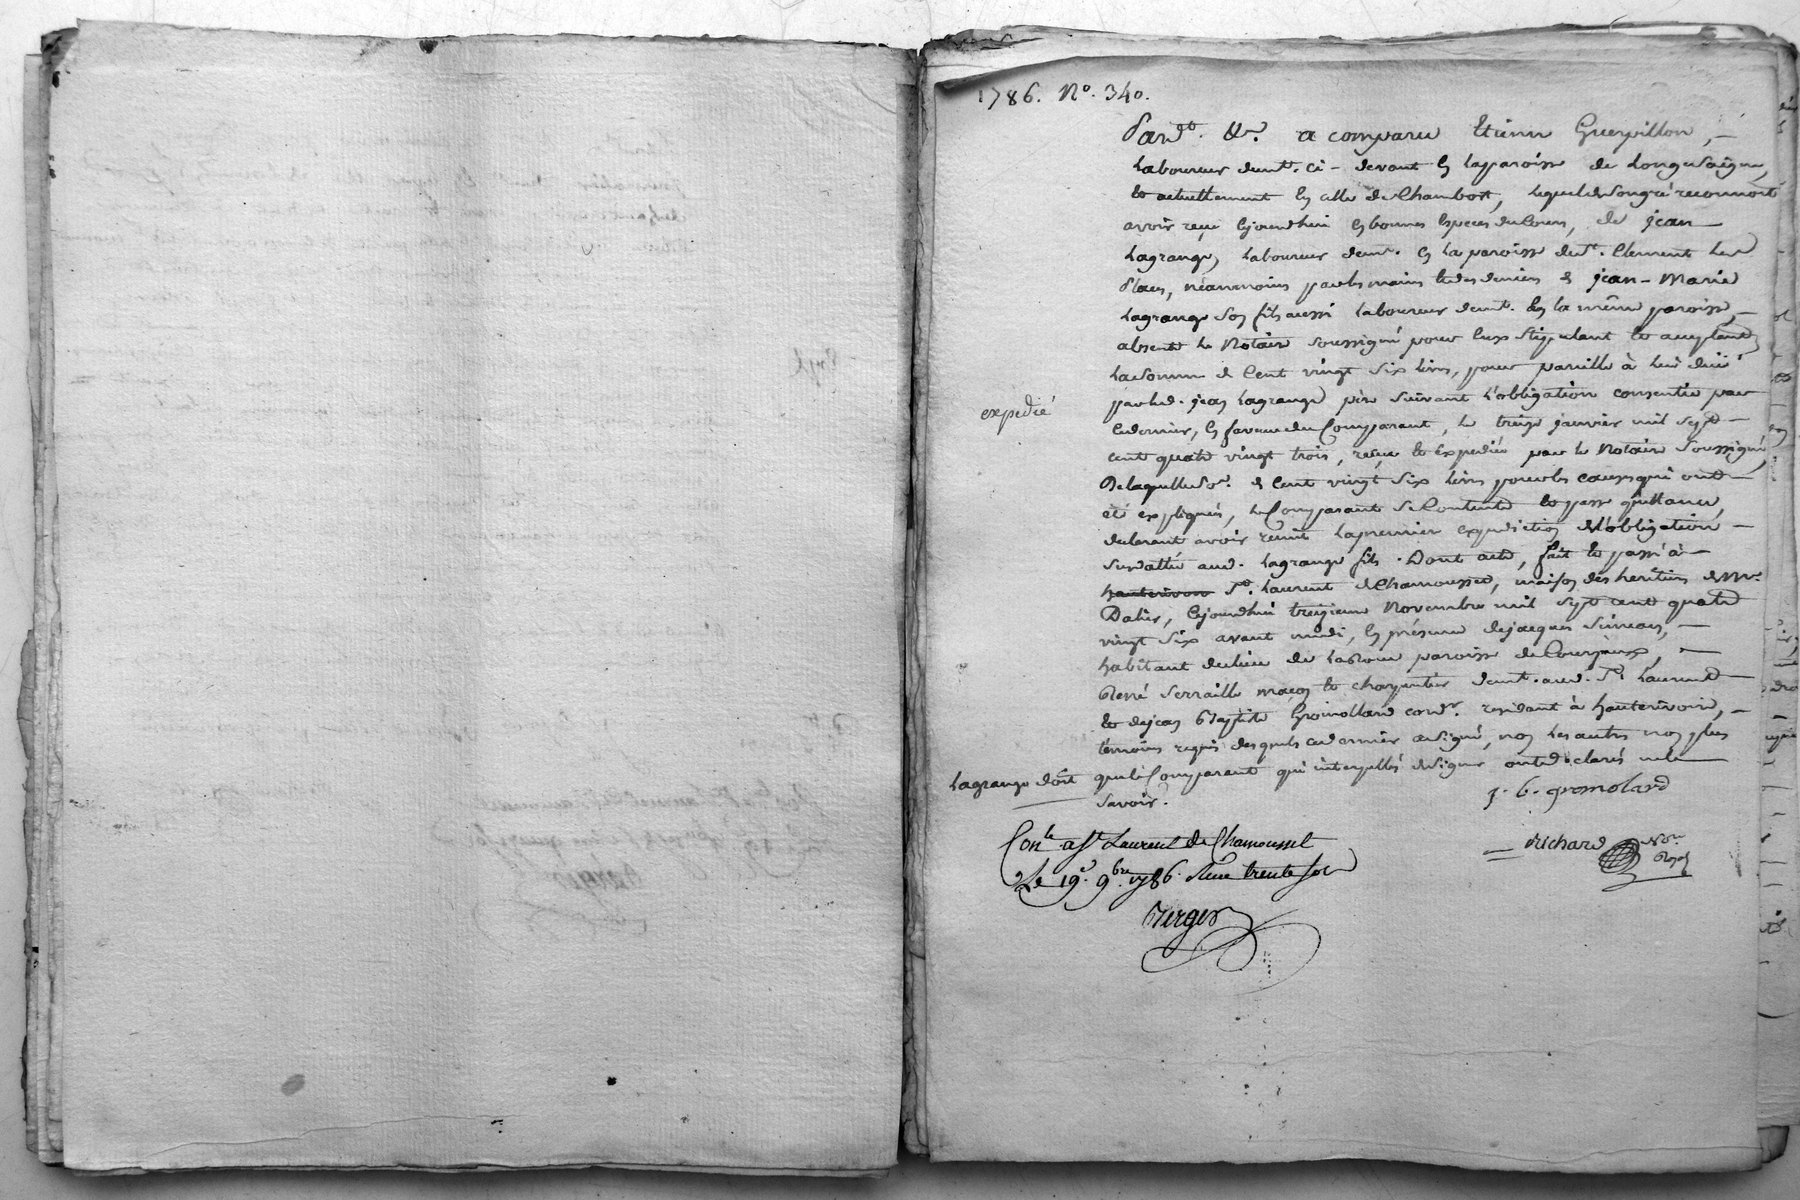 1786. No. 340.
Pardt. &r. a comparu Etienne Guerpillon,
Laboureur demt. ci-devant en la paroisse de Longesaigne,
et actuellement en celle de Chambost, lequel de son gré reconnoit
avoir reçu cejourdhui en bonnes especes du Cours, de jean
Lagrange, Laboureur demt. en la paroisse de St. Clement les
Places, néanmoins par les mains et des deniers de jean-Marie
Lagrange son fils aussi Laboureur demt. en la même paroisse,
absent le Notaire soussigné pour eux stipulant et acceptant
La somme de Cent vingt six livres, pour pareille à lui duë
par led. jean Lagrange père suivant l'obligation consentie par
ce dernier, en faveur du Comparant, le treize janvier mil sept
cent quatre vingt trois, reçue et expediée par le Notaire soussigné,
De laquelle soe. de Cent vingt six livres pour les causes qui ont
été expliquées, le Comparant se Contente et passe quittance,
declarant avoir remit la premiere expedition de l'obligation
sus datée aud. Lagrange fils. Dont acte, fait et passé à
hauterivoire St. Laurent de Chamousset, maison des heritiers de Mr.
Dalier, cejourdhui treizieme Novembre mil sept cent quatre
vingt six avant midi, en présence de jacques Simean,
habitant du lieu de paroisse de Courzieux,
René Serraille maçon et charpentier demt. aud. St. Laurent
et de jean Baptiste Gromollard cordr. residant à hauterivoire,
témoins requis desquels ce dernier a signé, non les autres non plus
que le Comparant qui interpellés de signer ont declarés ne le
savoir.
expedié
Lagrange doit
j. b. gromolard
Richard Nore. Royal
Conlé a St Laurent de Chamousset
Le 19e. 9bre 1786. Reçu trente sols
Berger